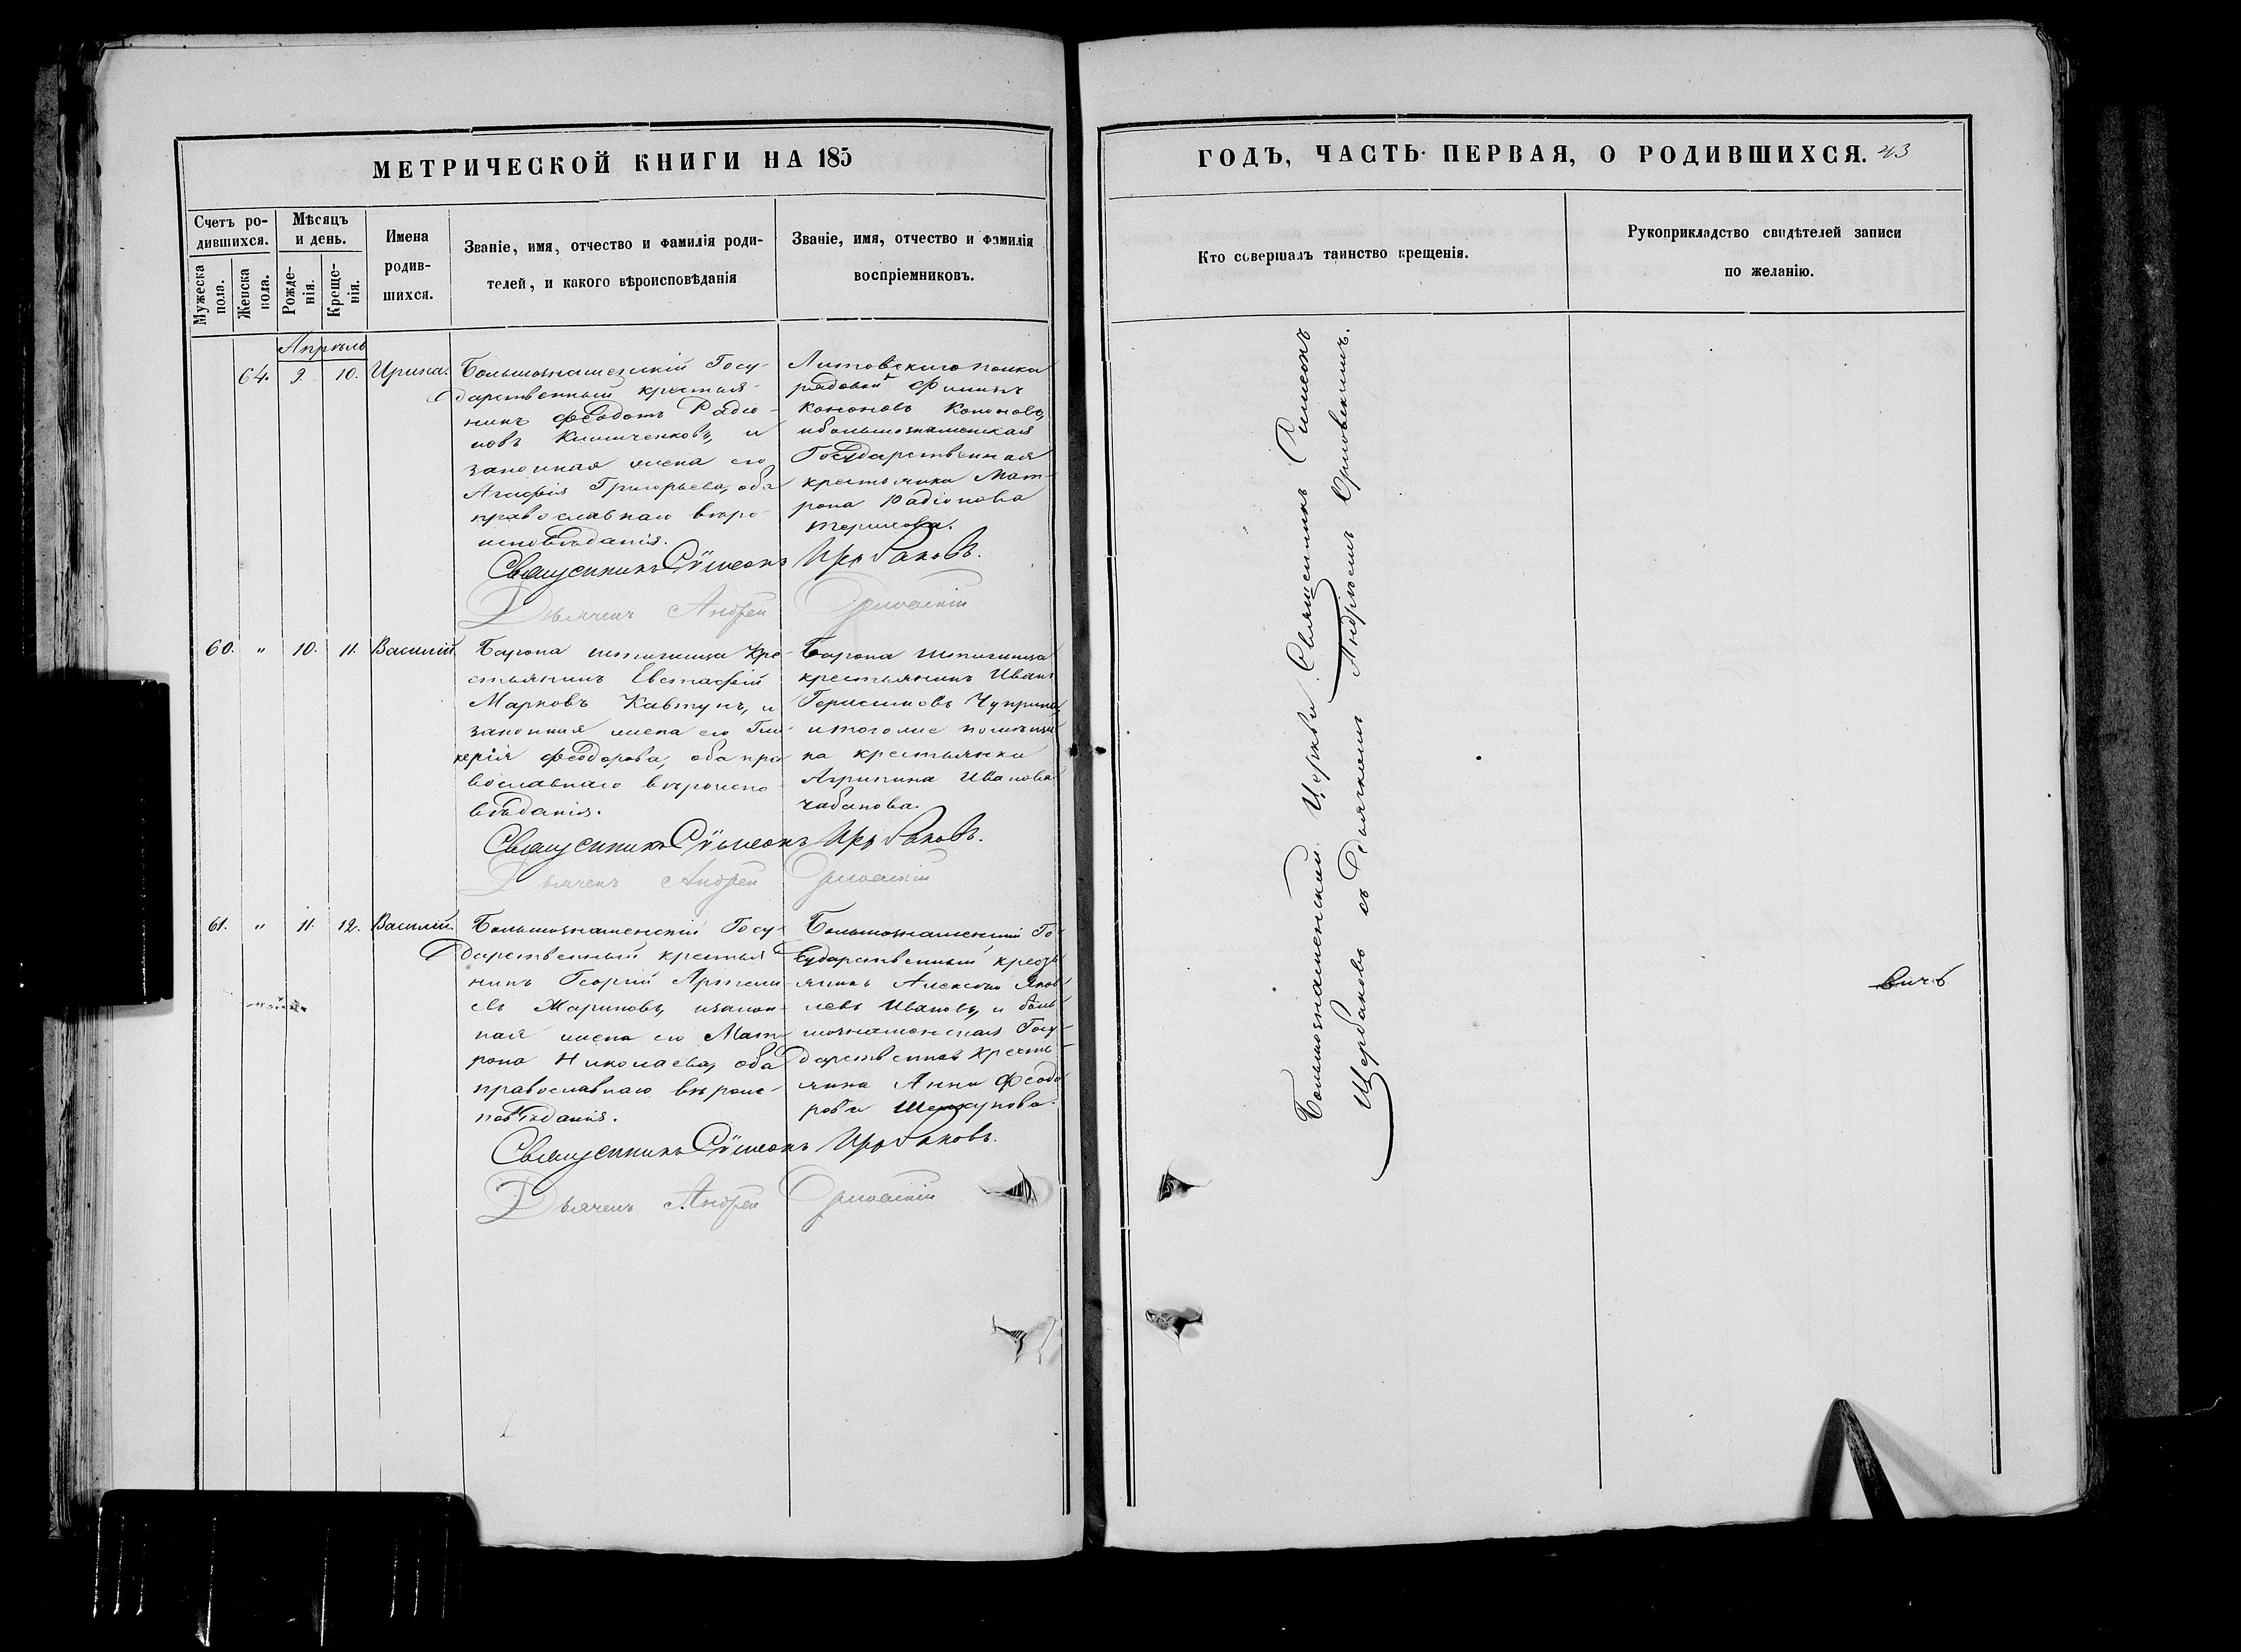 МЕТРИЧЕСКОЙ КНИГИ НА 185
Счетъ ро-
дившихся.
Мужеска
пола.
Женска
пола.
Мѣсяцъ
и день.
Рожде-
нія.
Креще-
нія.
Имена
родив-
шихся.
Званіе, имя, отчество и фамилія роди-
телей, и какого вѣроисповѣданія
Званіе, имя, отчество и фамилія
воспріемниковъ.
Апрѣль
64. 9. 10. Ирина.
Большознаменскій Госу-
дарственный крестья-
нинъ Феодотъ Радіо-
новъ и
законная жена его
Агафія Григорьева, оба
православнаго вѣро-
исповѣданія.
Литовскаго полка
рядовой Филипъ
Кононовъ Кононовъ,
и большознаменская
Государственная
крестьянка Мат-
рона Радіонова
Терихова.
Священникъ Сѵмеонъ Щербаковъ.
Дьячекъ Андрей Орловскій
60. " 10. 11. Василій.
Барона Штиглица Кре-
стьянинъ Евстафій
Марковъ Кавтунъ, и
законная жена его Гли-
керія Феодорова, оба пра-
вославнаго вѣроиспо-
вѣданія.
Барона Штиглица
крестьянинъ Иванъ
Герасимовъ Чуприна,
и тогоже помѣщи-
ка крестьянка
Агрипина Иванова
Чабанова.
Священникъ Сѵмеонъ Щербаковъ.
Дьячекъ Андрей Орловскій
61. " 11. 12. Василій.
Большознаменскій Госу-
дарственный крестья-
нинъ Георгій Артемі-
евъ Мариновъ, и закон-
ная жена его Мат-
рона Николаева, оба
православнаго вѣроис-
повѣданія.
Большознаменскій Го-
сударственный крестъ-
янинъ Алексѣй Яков-
левъ Ивановъ, и боль-
шознаменская Госу-
дарственная Кресть-
янка Анна Феодо-
рова
Священникъ Сѵмеонъ Щербаковъ.
Дьячекъ Андрей Орловскій
ГОДЪ, ЧАСТЬ ПЕРВАЯ, О РОДИВШИХСЯ. 43
Кто совершалъ таинство крещенія.
Рукоприкладство свидѣтелей записи
по желанію.
Большознаменской Церкви Священникъ Симеонъ
Щербаковъ съ Дьячкомъ Андреемъ Орловскимъ.
вичъ